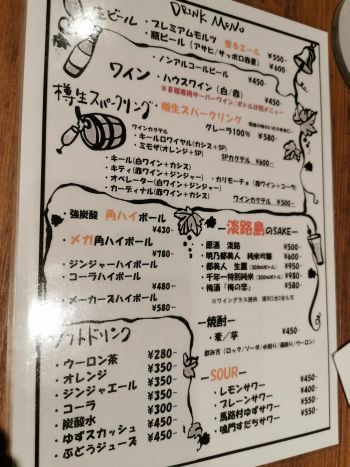 DRINK MENU
生ビール・プレミアムモルツ 香るエール ¥550-
・瓶ビール(アサヒ/サッポロ赤星) ¥600-
・ノンアルコールビール ¥450-
ワイン・ハウスワイン(白/赤) ¥450-
※8種専用サーバーワイン/ボトルは別メニュー
樽生スパークリング・樽生スパークリング
グレーラ100% ¥580-
ワインカクテル
・キールロワイヤル(カシス+SP)
・ミモザ(オレンジ+SP) SPカクテル ¥600-
・キール(白ワイン+カシス)
・キティ(赤ワイン+ジンジャー) ・カリモーチョ(赤ワイン+コーラ)
・オペレーター(白ワイン+ジンジャー)
・カーディナル(赤ワイン+カシス) ワインカクテル ¥500-
・強炭酸 角ハイボール ¥430-
・メガ角ハイボール ¥780-
・ジンジャーハイボール
・コーラハイボール ¥480-
・メーカーズハイボール ¥580-
ー淡路島のSAKEー
・原酒 淡路 ¥500-
・暁乃都美人 純米吟醸 ¥600-
・都美人 生囂(300mlボトル) ¥980-
・千年一特別純米(300mlボトル) ¥980-
・梅酒「梅の恋」 ¥580-
ー焼酎ー
・麦/芋 ¥450-
飲み方(ロック/ソーダ/水割り/湯割り/ウーロン)
ーSOURー
・レモンサワー ¥450-
・プレーンサワー ¥450-
・馬路村ゆずサワー ¥450-
・鳴門すだちサワー ¥450-
ソフトドリンク
・ウーロン茶 ¥280-
・オレンジ ¥350-
・ジンジャエール ¥350-
・コーラ ¥350-
・炭酸水 ¥300-
・ゆずスカッシュ ¥450-
・ぶどうジュース ¥450-